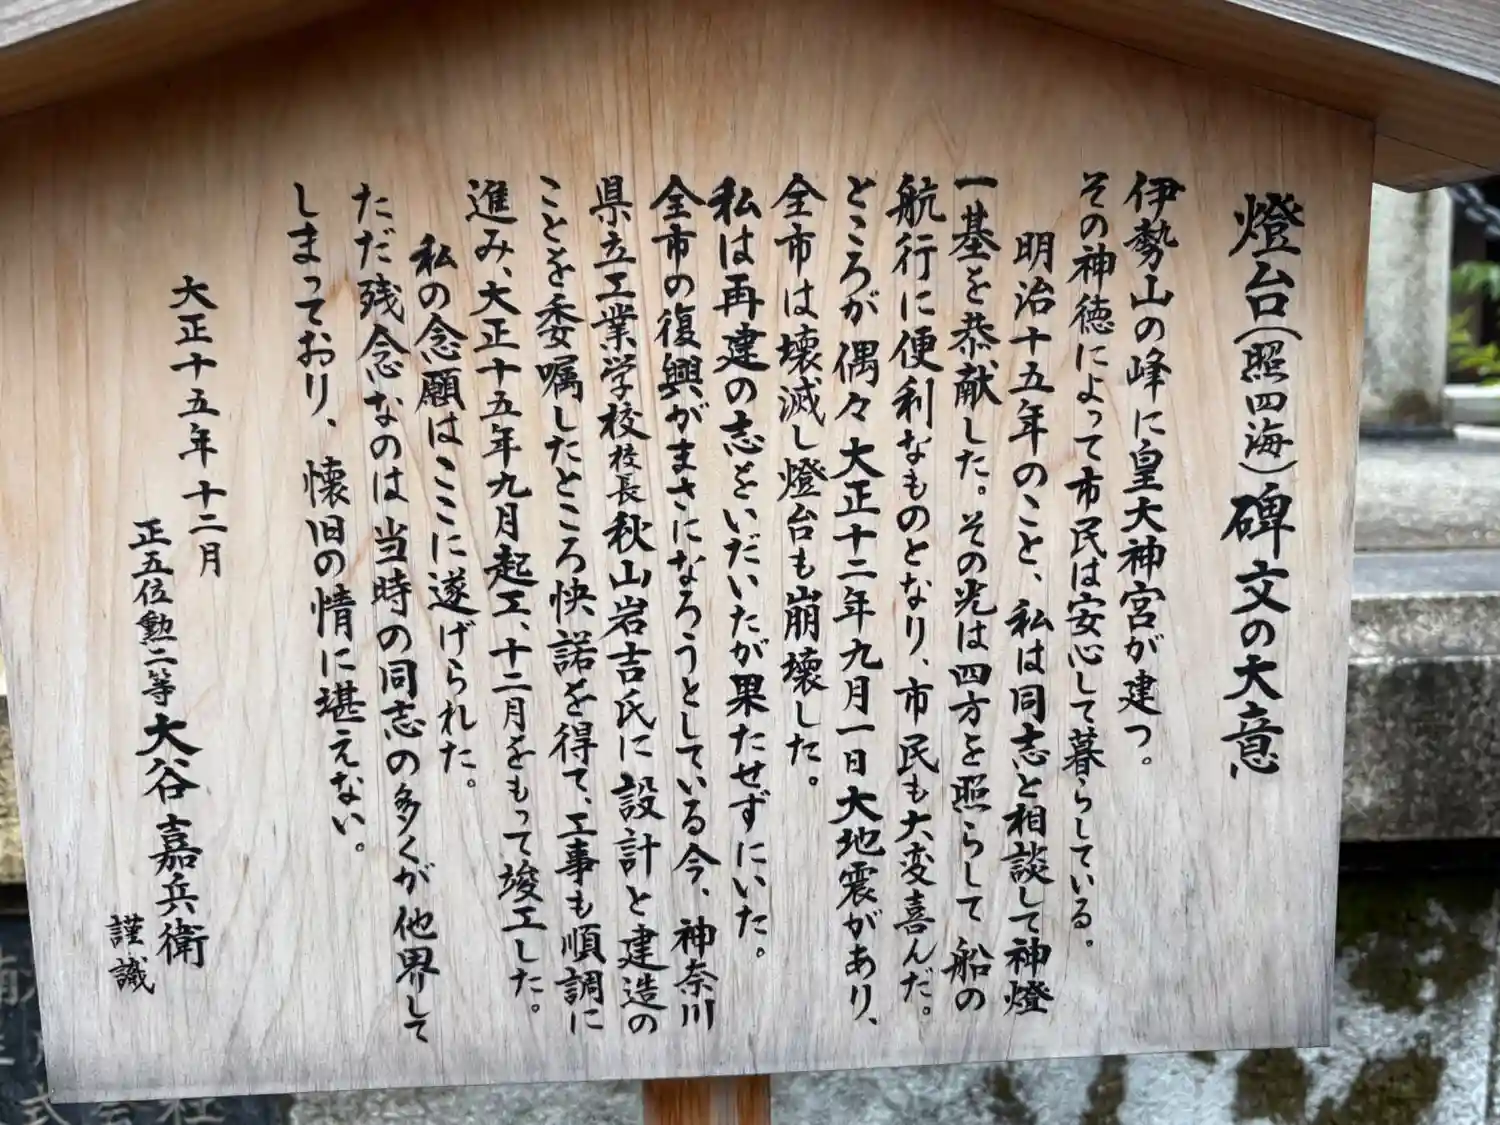 燈台(照四海)碑文の大意
伊勢山の峰に皇大神宮が建つ。
その神徳によって市民は安心して暮らしている。
明治十五年のこと、私は同志と相談して神燈
一基を恭献した。その光は四方を照らして船の
航行に便利なものとなり、市民も大変喜んだ。
ところが偶々大正十二年九月一日大地震があり、
全市は壊滅し燈台も崩壊した。
私は再建の志をいだいたが果たせずにいた。
全市の復興がまさになろうとしている今、神奈川
県立工業学校校長秋山岩吉氏に設計と建造の
ことを委嘱したところ快諾を得て、工事も順調に
進み、大正十五年九月起工、十二月をもって竣工した。
私の念願はここに遂げられた。
ただ残念なのは当時の同志の多くが他界して
しまっており、懐旧の情に堪えない。
大正十五年十二月
正五位勲二等大谷嘉兵衛
謹識
式会社